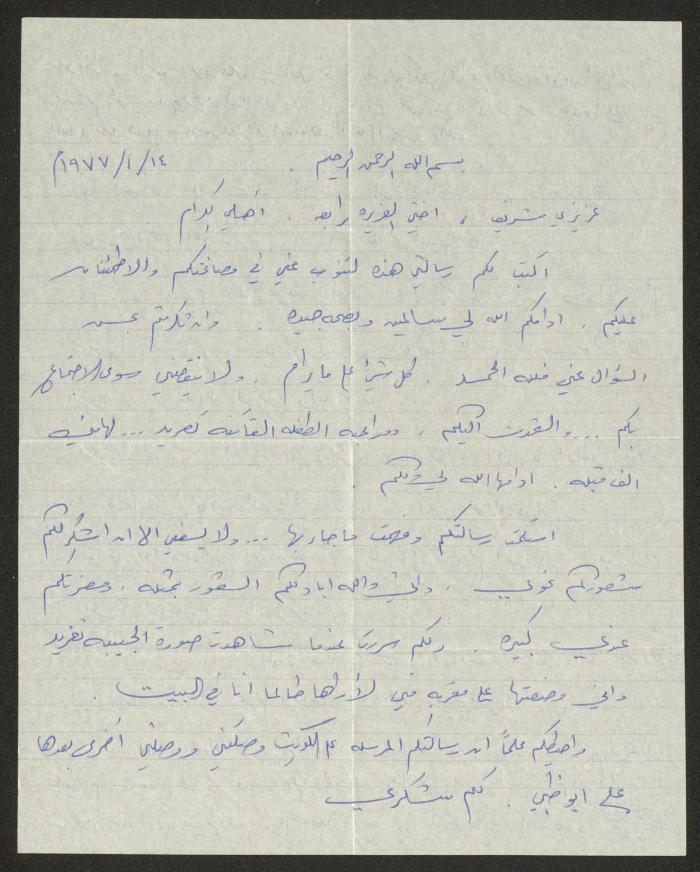 بسم الله الرحمن الرحيم . ١٩٧٧/١/١٤م
عزيزي شريف ، اختي العزيزه رابعه . أهلي الكرام
اكتب لكم رسالتي هذه لتنوب عني في مصافحتكم والاطمئنان
عليكم . ادامكم الله لي سالمين وبصحه جيده . وان تكرمتم عن
السؤال عني فلله الحمد . كل شيئ على ما يرام . ولا ينقصني سوى الاجتماع
بكم ... والتحدث اليكم . ومداعبة الطفله تغريد ... لها مني
الف قبله . ادامها الله لي ولكم
استلمت رسالتكم وفهمت ما جاء بها ... ولا يسعني الا ان اشكر لكم
شعوركم نحوي . واني والله ابادلكم الشعور بمثله . ومعزتكم
عندي كبيره . ولكم سررت عندما شاهدت صورة الحبيبه تغريد
واني وضعتها على مقربه مني لأراها طالما انا في البيت .
واحيطكم علماً ان رسالتكم المرسله على الكويت وصلتني ووصلني أخرى بعدها
على ابو ظبي . لكم شكري